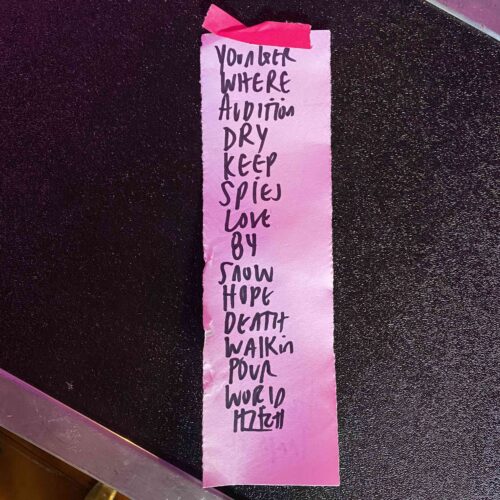 YOUNGER
WHERE
AUDITION
DRY
KEEP
SPIES
LOVE
BY
SNOW
HOPE
DEATH
WALKin
POUR
WORLD